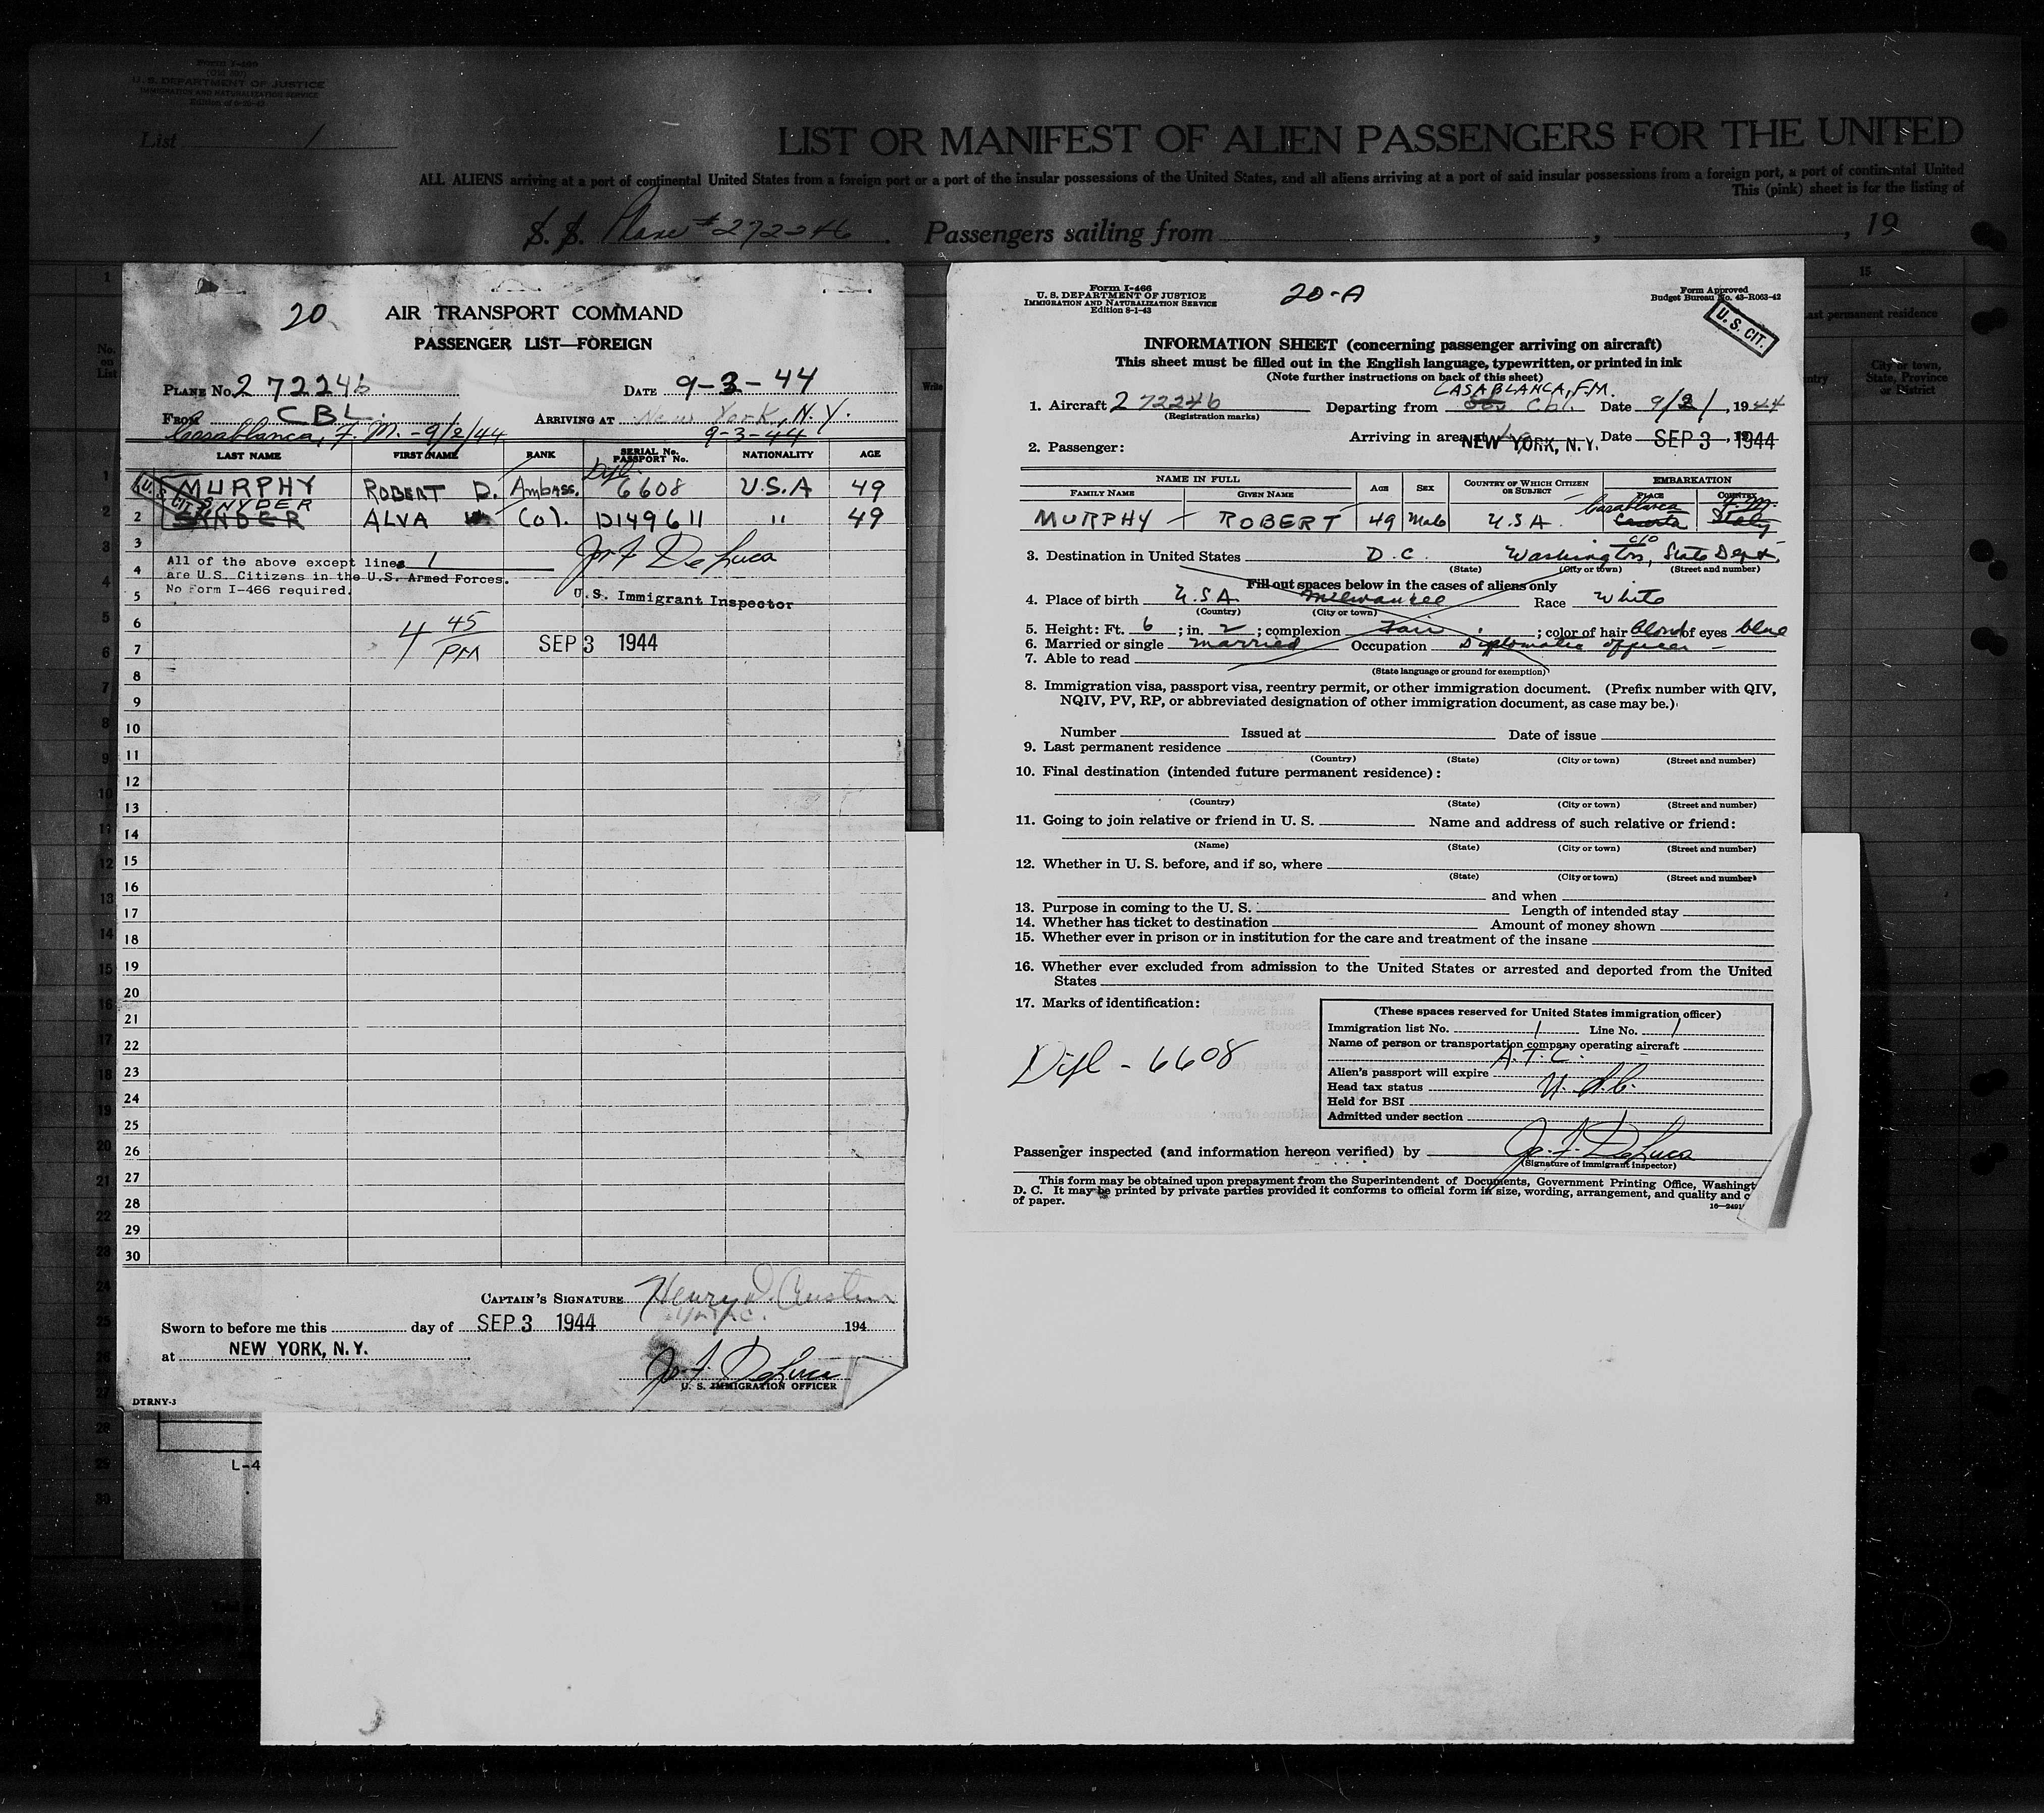 Form I-466
U. S. DEPARTMENT OF JUSTICE
IMMIGRATION AND NATURALIZATION SERVICE
List 1
LIST OR MANIFEST OF ALIEN PASSENGERS FOR THE UNITED
ALL ALIENS arriving at a port of continental United States from a foreign port or a port of the insular possessions of the United States, and all aliens arriving at a port of said insular possessions from a foreign port, a port of continental United
This (pink) sheet is for the listing of
S. S. Plane #272246. Passengers sailing from , , 19
15
Last permanent residence
City or town, State, Province or District
No. on List
20
AIR TRANSPORT COMMAND
PASSENGER LIST—FOREIGN
PLANE NO. 272246 DATE 9-3-44
FROM CBL. ARRIVING AT New York, N.Y.
Casablanca, F. M. - 9/2/44 9-3-44
LAST NAME FIRST NAME RANK SERIAL No. PASSPORT No. NATIONALITY AGE
Dipl.
1 MURPHY ROBERT D. Ambass. 6608 U.S.A 49
U.S. CIT.
SNYDER
2 SANDER ALVA Col. 0149611 " 49
3
Jos. F. DeLuca
All of the above except lines 1
4
are U.S. Citizens in the U.S. Armed Forces.
5
No Form I-466 required.
U.S. Immigrant Inspector
6
4 45 PM
7
SEP 3 1944
8
9
10
11
12
13
14
15
16
17
18
19
20
21
22
23
24
25
26
27
28
29
30
CAPTAIN'S SIGNATURE Henry D. Austin
Sworn to before me this day of SEP 3 1944 194
at NEW YORK, N. Y.
Jos. F. DeLuca
U. S. IMMIGRATION OFFICER
DTRNY-3
L-4
Form I-466
U. S. DEPARTMENT OF JUSTICE
IMMIGRATION AND NATURALIZATION SERVICE
Edition 8-1-43
20-A
Form Approved
Budget Bureau No. 43-R063-42
U. S. CIT.
INFORMATION SHEET (concerning passenger arriving on aircraft)
This sheet must be filled out in the English language, typewritten, or printed in ink
(Note further instructions on back of this sheet)
CASABLANCA, F.M.
1. Aircraft 272246 Departing from Cbl. Date 9/2/, 1944
(Registration marks)
Arriving in area at NEW YORK, N. Y. Date SEP 3, 1944
2. Passenger:
NAME IN FULL AGE SEX COUNTRY OF WHICH CITIZEN OR SUBJECT EMBARKATION
FAMILY NAME GIVEN NAME PLACE COUNTRY
Casablanca F. M.
MURPHY ROBERT 49 Male U.S.A. Caserta Italy
c/o
3. Destination in United States D.C. Washington, State Dept.
(State) (City or town) (Street and number)
Fill out spaces below in the cases of aliens only
4. Place of birth U.S.A. Milwaukee Race White
(Country) (City or town)
5. Height: Ft. 6; in. 2; complexion Fair; color of hair Blond of eyes blue
6. Married or single married Occupation Diplomatic officer -
7. Able to read
(State language or ground for exemption)
8. Immigration visa, passport visa, reentry permit, or other immigration document. (Prefix number with QIV,
NQIV, PV, RP, or abbreviated designation of other immigration document, as case may be.)
Number Issued at Date of issue
9. Last permanent residence
(Country) (State) (City or town) (Street and number)
10. Final destination (intended future permanent residence):
(Country) (State) (City or town) (Street and number)
11. Going to join relative or friend in U. S. Name and address of such relative or friend:
(Name) (State) (City or town) (Street and number)
12. Whether in U. S. before, and if so, where
(State) (City or town) (Street and number)
and when
13. Purpose in coming to the U. S. Length of intended stay
14. Whether has ticket to destination Amount of money shown
15. Whether ever in prison or in institution for the care and treatment of the insane
16. Whether ever excluded from admission to the United States or arrested and deported from the United
States
17. Marks of identification:
Dipl - 6608
(These spaces reserved for United States immigration officer)
Immigration list No. 1 Line No. 1
Name of person or transportation company operating aircraft
A.T.C.
Alien's passport will expire
Head tax status U.S.C.
Held for BSI
Admitted under section
Passenger inspected (and information hereon verified) by Jos. F. DeLuca
(Signature of immigrant inspector)
This form may be obtained upon prepayment from the Superintendent of Documents, Government Printing Office, Washingt
D. C. It may be printed by private parties provided it conforms to official form in size, wording, arrangement, and quality and c
of paper.